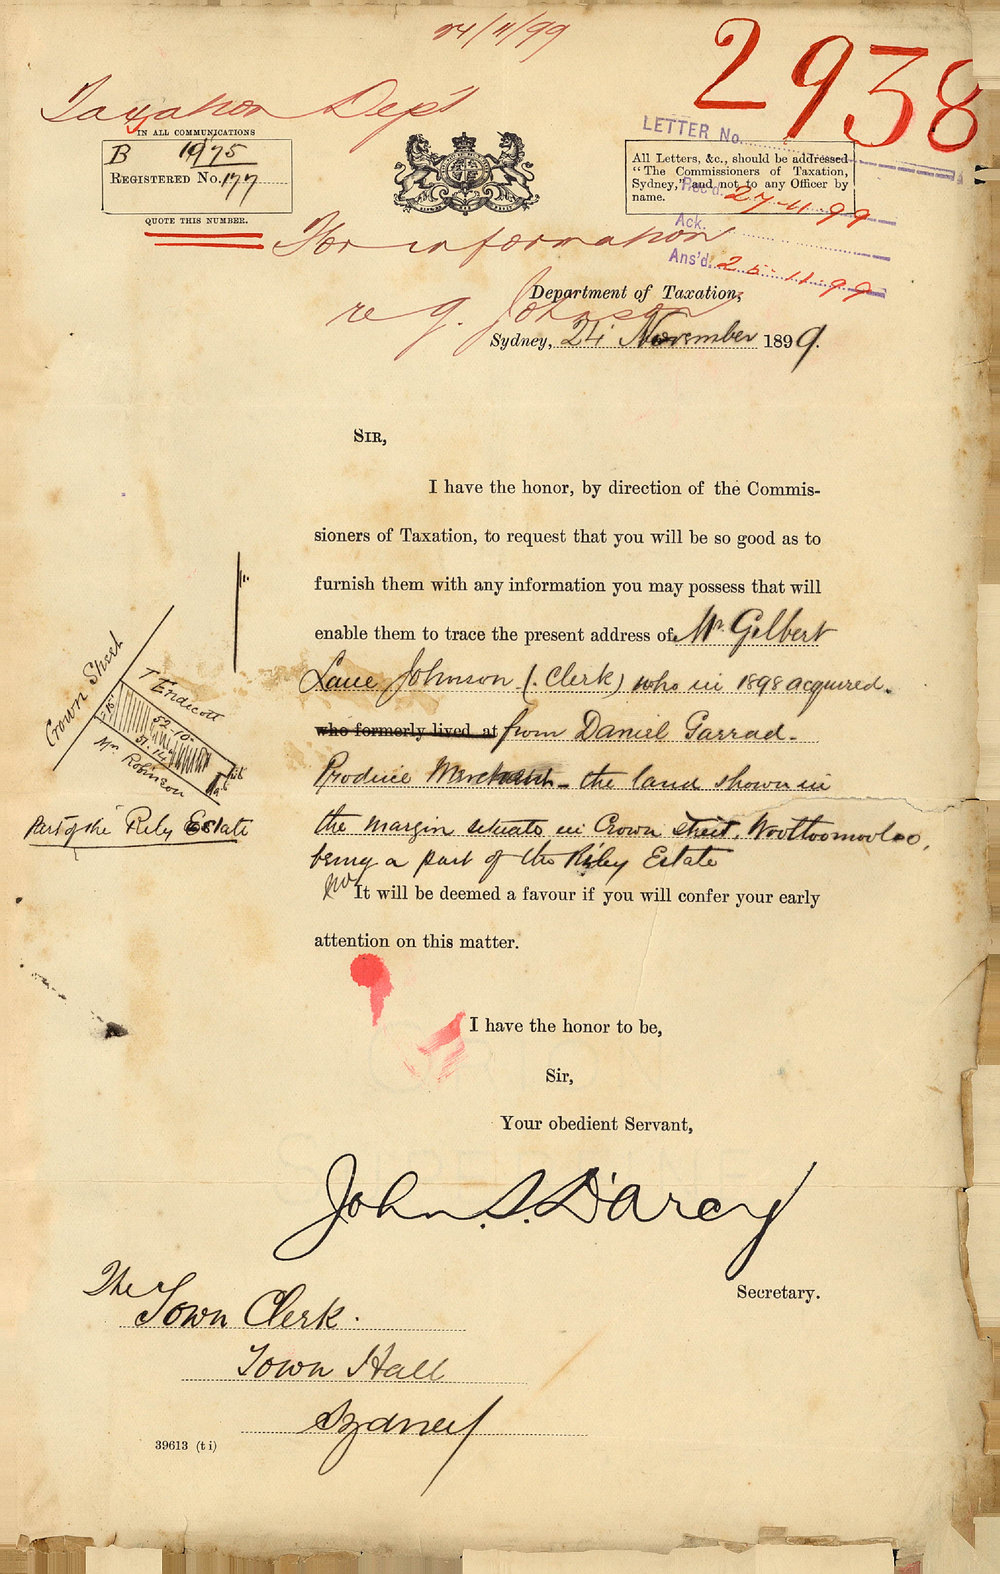 24/11/99
2938
Taxation Dept
IN ALL COMMUNICATIONS
B 1975
REGISTERED No. 177
QUOTE THIS NUMBER.
LETTER No.
All Letters, &c., should be addressed
"The Commissioners of Taxation,
Sydney," and not to any Officer by
name.
Rec'd. 27-11-99
Ack.
Ans'd. 25-11-99
For information
re G. Johnson
Department of Taxation,
Sydney, 24 November 1899.
SIR,
I have the honor, by direction of the Commis-
sioners of Taxation, to request that you will be so good as to
furnish them with any information you may possess that will
enable them to trace the present address of Mr. Gilbert
Lane Johnson (Clerk) who in 1898 acquired
who formerly lived at from Daniel Garrad
Produce Merchant - the land shown in
the margin situate in Crown Street, Woolloomooloo,
being a part of the Riley Estate
It will be deemed a favour if you will confer your early
attention on this matter.
Crown Street
T Endicott
52.10
51.14
Mr. Robinson
Part of the Riley Estate
I have the honor to be,
Sir,
Your obedient Servant,
John S. D'Arcy
Secretary.
The
Town Clerk.
Town Hall
Sydney
39613 (ti)